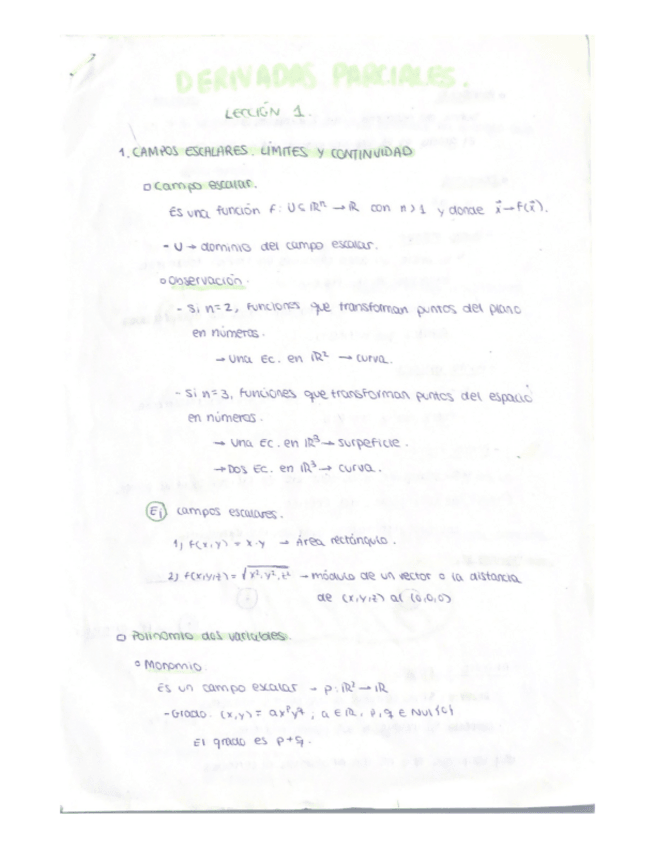 DERIVADAS PARCIALES.
LECCIÓN 1.
1. CAMPOS ESCALARES. LÍMITES Y CONTINUIDAD
Campo escalar.
Es una función F: U⊆ℝⁿ → ℝ con n>1 y donde x⃗→F(x⃗).
- U → dominio del campo escalar.
Observación.
- Si n=2, funciones que transforman puntos del plano
en números.
→ Una Ec. en ℝ² → curva.
- Si n=3, funciones que transforman puntos del espacio
en números.
→ Una Ec. en ℝ³ → surpeficie.
→ Dos Ec. en ℝ³ → curva.
Ej campos escalares.
1) f(x,y) = x·y → Área rectángulo.
2) f(x,y,z) = √x²,y²,z² → módulo de un vector o la distancia
de (x,y,z) al (0,0,0)
Polinomio dos variables.
Monomio.
Es un campo escalar → p: ℝ² → ℝ
- Grado. (x,y) = axᵖy^q, a ∈ ℝ, p,q ∈ ℕ∪{0}
El grado es p+q.